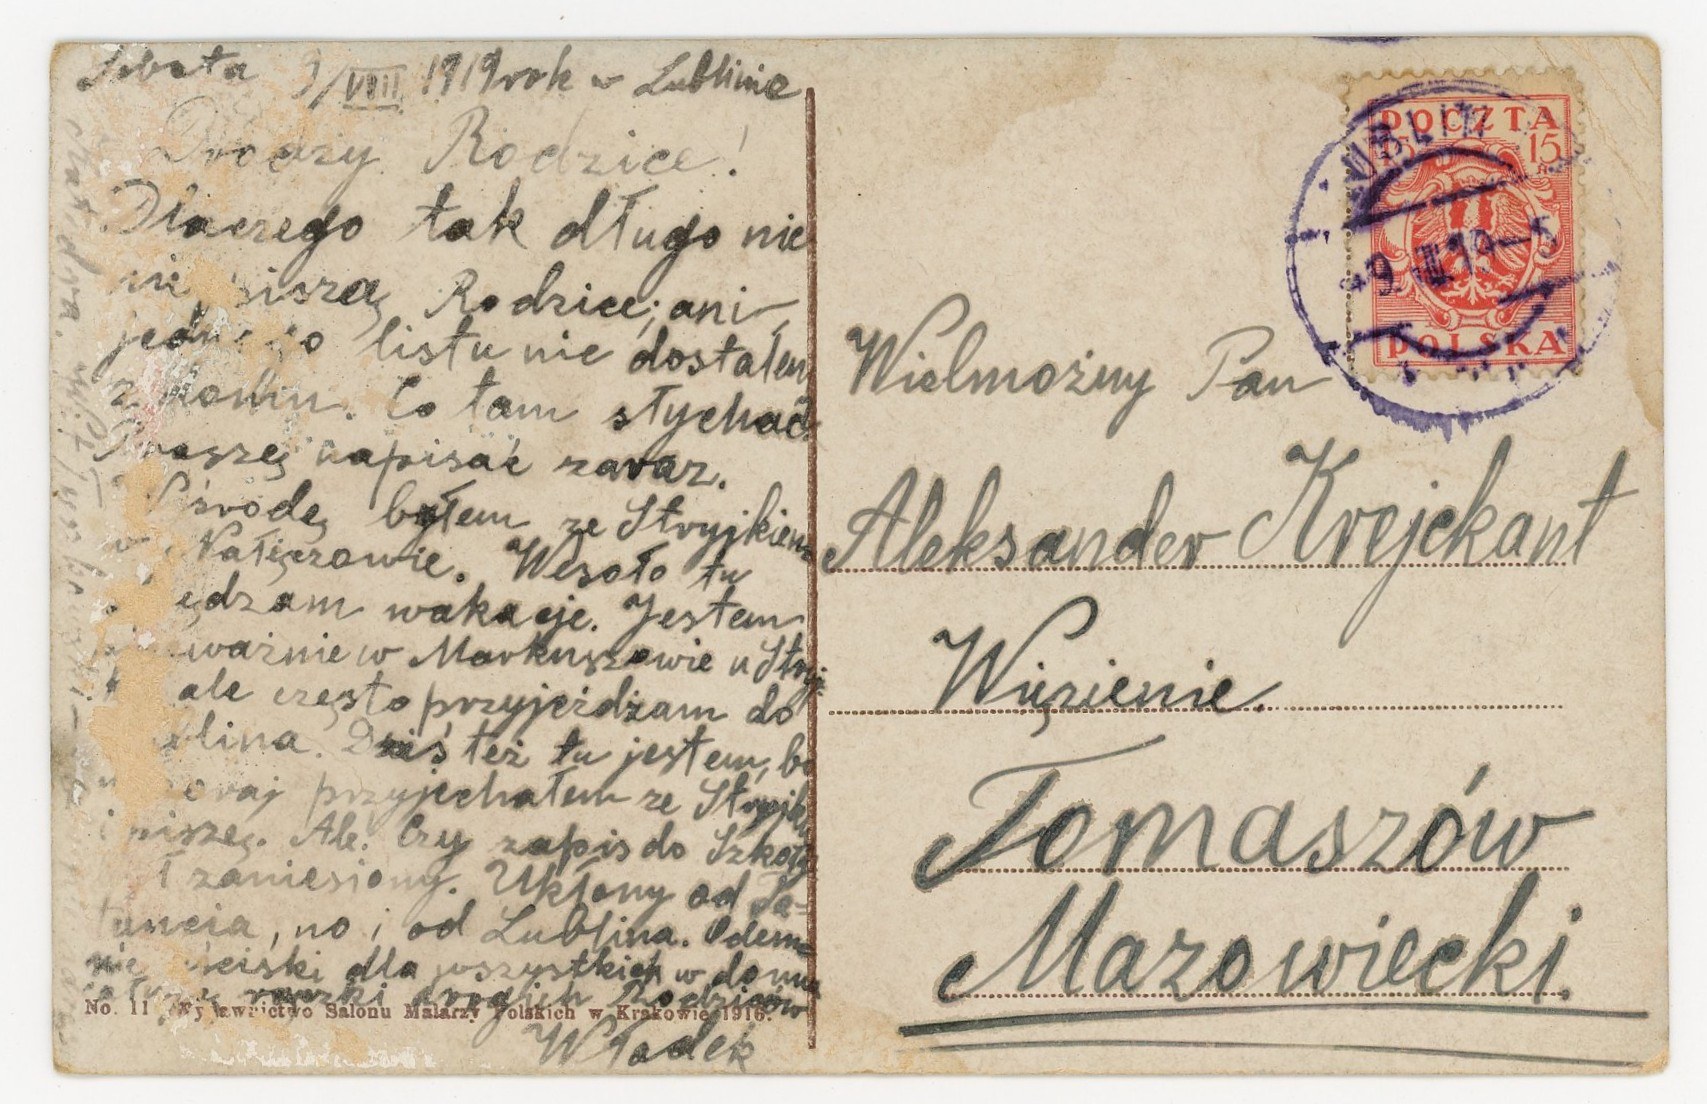 Sobota 9/VIII 1919 rok w Lublinie
Drodzy Rodzice!
Dlaczego tak długo nie
nie piszą Rodzice, ani
jednego listu nie dostałem
z domu. Co tam słychać
Proszę napisać zaraz.
W środę byłem ze Stryjkiem
w Nałęczowie. Wesoło tu
ędzam wakacje. Jestem
ważnie w Markuszowie u Stryj
ale często przyjeżdżam do
blina. Dziś też tu jestem, bo
oraj przyjechałem ze Stryjk
i piszę. Ale! Czy zapis do Szkoły
ł zaniesiony. Ukłony od Ta=
tuncia, no i od Lublina. Odem=
nie uściski dla wszystkich w domu
rączki drogich Rodziców
Władek
No. 11 Wydawnictwo Salonu Malarzy Polskich w Krakowie 1916.
POCZTA
15 15
POLSKA
LUBLIN
*9. VIII 19-5
Wielmożny Pan
Aleksander Krejckant
Więzienie.
Tomaszów
Mazowiecki.